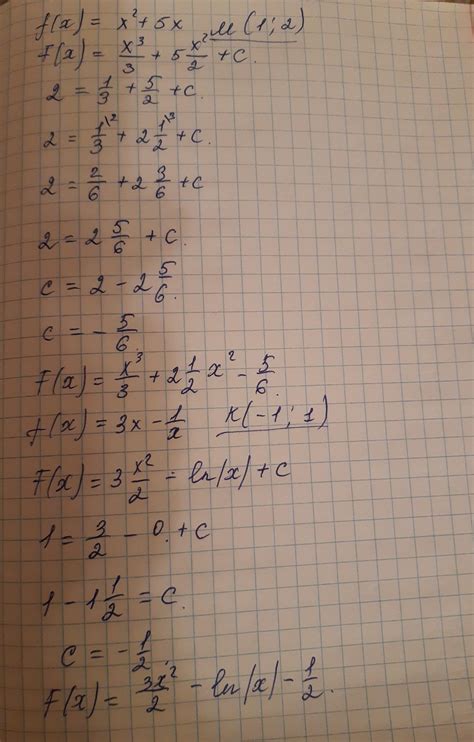 f(x) = x² + 5x   M(1; 2)
F(x) = x³/3 + 5 x²/2 + C.
2 = 1/3 + 5/2 + C.
2 = 1\²/3 + 2 1\³/2 + C.
2 = 2/6 + 2 3/6 + C
2 = 2 5/6 + C.
C = 2 - 2 5/6.
C = - 5/6.
F(x) = x³/3 + 2 1/2 x² - 5/6.
f(x) = 3x - 1/x   K(-1; 1)
F(x) = 3 x²/2 - ln|x| + C
1 = 3/2 - 0. + C
1 - 1 1/2 = C.
C = - 1/2.
F(x) = 3x²/2 - ln|x| - 1/2.